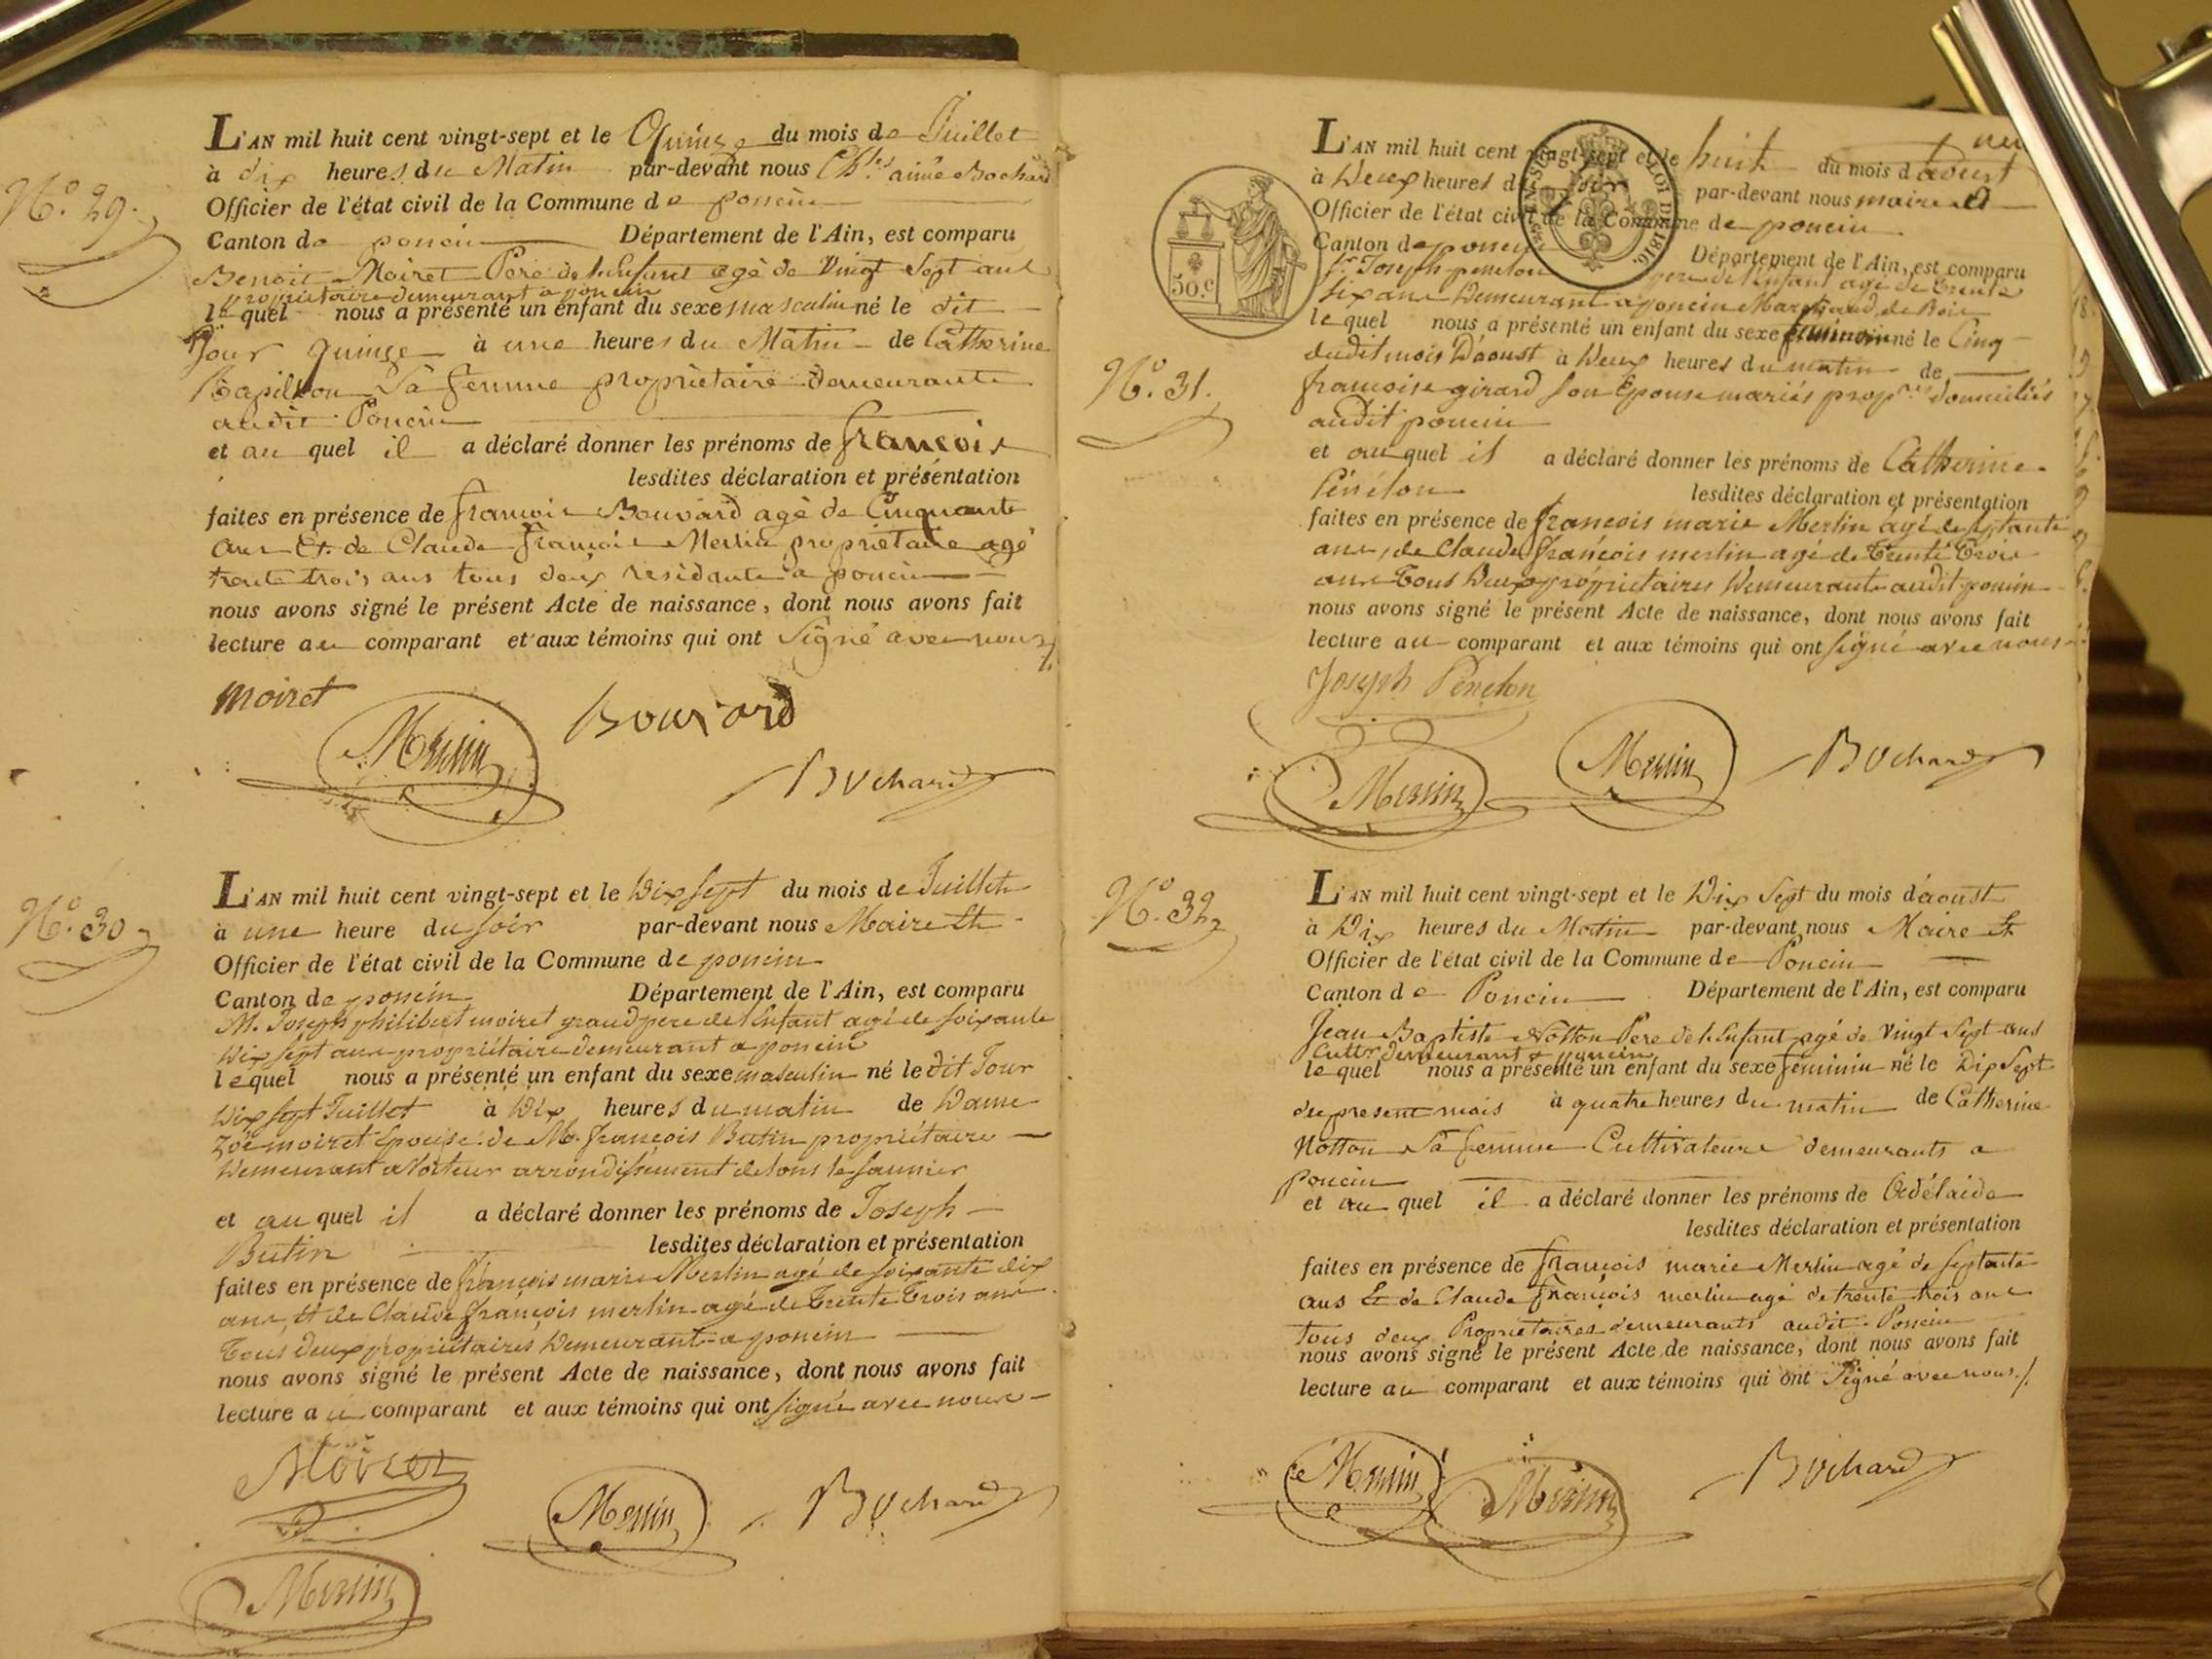 N.º 29.
L'AN mil huit cent vingt-sept et le Quinze du mois de Juillet
à dix heures du Matin par-devant nous Ch.les aimé Bochard
Officier de l'état civil de la Commune de poncin
Canton de poncin Département de l'Ain, est comparu
Benoit Moiret Pere de l'Enfant agé de Vingt Sept ans
propriétaire demeurant a poncin
lequel nous a présenté un enfant du sexe masculin né le dit
Jour quinze à une heures du Matin de Catherine
Sa femme propriètaire demeurante
audit Poncin
et au quel il a déclaré donner les prénoms de francois
lesdites déclaration et présentation
faites en présence de francois Bouvard agé de Cinquante
ans Et de Claude françois Merlin propriètaire agé
trente trois ans tous deux residants a poncin
nous avons signé le présent Acte de naissance, dont nous avons fait
lecture au comparant et aux témoins qui ont Signé avec nous
moiret
Merlin
Bouvard
Bochard
N.º 30
L'AN mil huit cent vingt-sept et le Dix Sept du mois de Juillet
à une heure du soir par-devant nous Maire Et
Officier de l'état civil de la Commune de poncin
Canton de poncin Département de l'Ain, est comparu
M. Joseph philibert moiret grand pere de l'Enfant agé de soixante
Dix sept ans propriétaire demeurant a poncin
lequel nous a présenté un enfant du sexe masculin né le dit Jour
Dix sept Juillet à Dix heures du matin de Dame
Zoé moiret Epouse de M. françois Butin propriétaire
Demeurant a arrondissement de lons le saunier
et au quel il a déclaré donner les prénoms de Joseph
Butin lesdites déclaration et présentation
faites en présence de françois marie Merlin agé de soixante dix
ans, Et de Claude françois merlin agé de Trente Trois ans
Tous deux propriétaires Demeurant a poncin
nous avons signé le présent Acte de naissance, dont nous avons fait
lecture au comparant et aux témoins qui ont signé avec nous
Moiret
Merlin
Bochard
Merlin
L'AN mil huit cent vingt-sept et le huit du mois d'aoust
à Deux heures du soir par-devant nous maire et
Officier de l'état civil de la Commune de poncin
Canton de poncin Département de l'Ain, est comparu
Sr. Joseph penelon pere de l'enfant agé de trente
six ans Demeurant a poncin Marchand de Bois
50.c
LOI DE 1816.
lequel nous a présenté un enfant du sexe feminin né le Cinq
dudit mois D'aoust à Deux heures du matin de
N.º 31.
francoise girard son Epouse mariés prop.res domiciliés
audit poncin
et au quel il a déclaré donner les prénoms de Catherine
Pénélon lesdites déclaration et présentation
faites en présence de françois marie Merlin agé de septante
ans, de Claude françois merlin agé de Trente Trois
ans Tous Deux propriétaires Demeurants audit poncin
nous avons signé le présent Acte de naissance, dont nous avons fait
lecture au comparant et aux témoins qui ont signé avec nous
Joseph Pénélon
Merlin
Merlin
Bochard
N.º 32
L'AN mil huit cent vingt-sept et le Dix Sept du mois d'aoust
à Dix heures du Matin par-devant nous Maire Et
Officier de l'état civil de la Commune de Poncin
Canton de Poncin Département de l'Ain, est comparu
Jean Baptiste Notton Pere de l'Enfant agé de Vingt Sept ans
Cultr demeurant a Poncin
lequel nous a présenté un enfant du sexe feminin né le Dix Sept
du present mois à quatre heures du matin de Catherine
Notton Sa femme Cultivateurs demeurants a
Poncin
et au quel il a déclaré donner les prénoms de Adélaide
lesdites déclaration et présentation
faites en présence de françois marie Merlin agé de septante
ans Et de Claude François merlin agé de trente trois ans
Tous deux Proprietaires demeurants audit Poncin
nous avons signé le présent Acte de naissance, dont nous avons fait
lecture au comparant et aux témoins qui ont Signé avec nous./.
Merlin
Merlin
Bochard